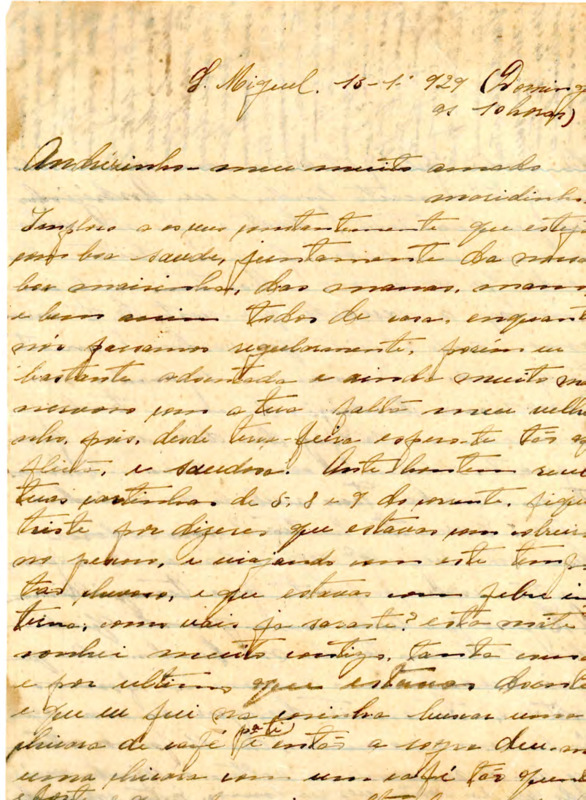 S. Miguel. 13-1º 929 (Doming
as 10 horas)
Andrézinho - meu muito amado
maridinho.
Imploro a Deus constantemente que esteja
com boa saude, juntamente da nossa
boa mãisinha, das manas, manos
e bem assim todos de casa, enquanto
nós passamos regularmente, porém eu
bastante adoentada e ainda muito mais
nervosa com a tua falta meu velhi
nho, pois, desde terça-feira espero-te tão a
flicta, e saudosa! Ante-hontem recebi
tuas cartinhas de 5, 8 e 9 do corrente, fiquei
triste por dizeres que estavas com
no pescoço, e viajando com este tempo
tão chuvoso, e que estavas com febre in
terna, como vais ja saraste? esta noite
sonhei muito contigo, tanta cousa
e por ultimo que estavas doente
e que eu fui na cosinha buscar uma
chicara de café pª ti e então a sogra deu-m
uma chicara com um café tão quen